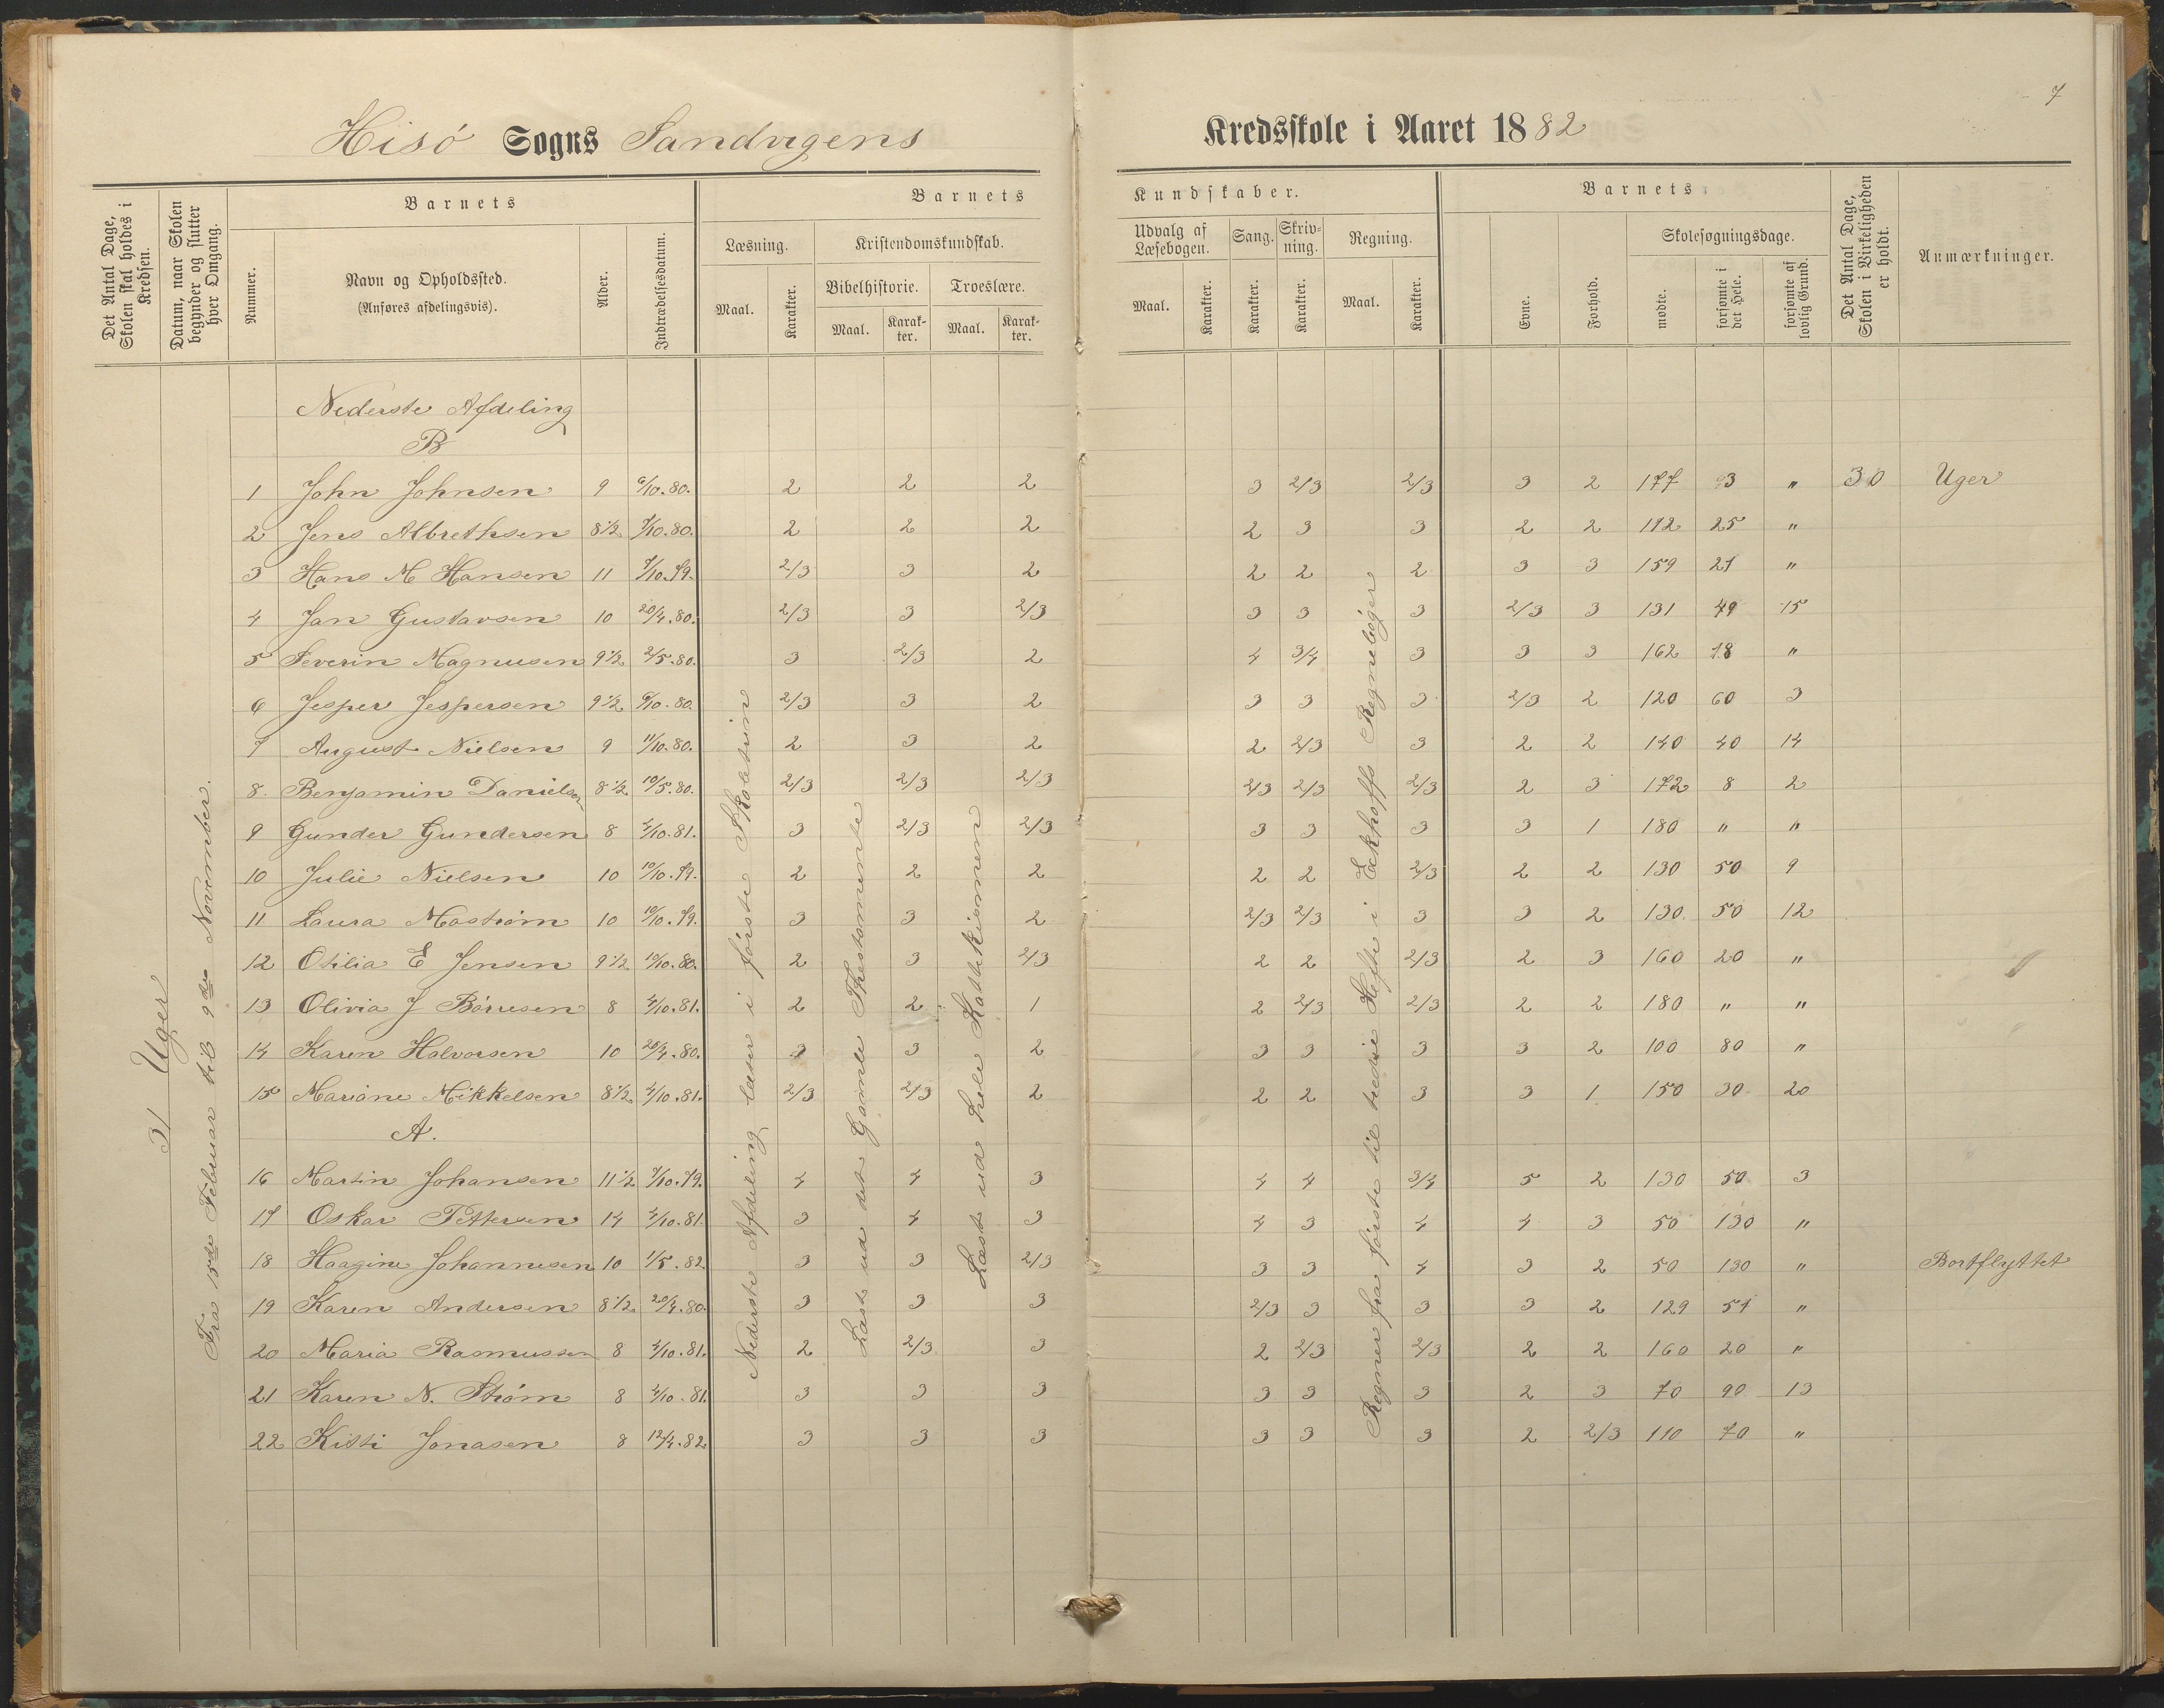 7
Hisö Sogns Sandvigens Kredsskole i Aaret 1882
Det Antal Dage, Skolen skal holdes i Kredsen.
Datum, naar Skolen begynder og slutter hver Omgang.
Nummer.
Barnets
Navn og Opholdssted.
(Anføres afdelingsvis).
Alder.
Indtrædelsesdatum.
Barnets Kundskaber.
Læsning.
Maal.
Karakter.
Kristendomskundskab.
Bibelhistorie.
Maal.
Karakter.
Troeslære.
Maal.
Karakter.
Udvalg af Læsebogen.
Maal.
Karakter.
Sang.
Karakter.
Skrivning.
Karakter.
Regning.
Maal.
Karakter.
Barnets
Evne.
Forhold.
Skolesøgningsdage.
mødte.
forsømte i det Hele.
forsømte af lovlig Grund.
Det Antal Dage, Skolen i Virkeligheden er holdt.
Anmærkninger.
31 Uger
Fra 15de Februar til 9de November.
Nederste Afdeling læser i første Skoletrin
Læst ud det Gamle Thestamente
Læst ud hele Kattekismen
Regner fra første til tredie Hefte i Eckhoffs Regnebøger
Nederste Afdeling
B
1 John Johnsen 9 6/10.80. 2 2 2 3 2/3 2/3 3 2 177 3 " 30 Uger
2 Jens Albrethsen 8 1/2 7/10.80. 2 2 2 2 3 3 2 2 25 "
3 Hans M Hansen 11 7/10.79. 2/3 3 2 2 2 2 3 3 159 21 "
4 Jan Gustavsen 10 20/4.80. 2/3 3 2/3 3 3 3 2/3 3 131 49 15
5 Severin Magnusen 9 1/2 2/5.80. 3 2/3 2 4 3/4 3 3 3 162 18 "
6 Jesper Jespersen 9 1/2 6/10.80. 2/3 3 2 3 3 3 2/3 2 120 60 3
7 August Nielsen 9 11/10.80. 2 3 2 2 2/3 3 2 2 140 40 14
8. Benjamin Danielsen 8 1/2 10/5.80. 2/3 2/3 2/3 2/3 2/3 2/3 2 3 172 8 2
9 Gunder Gundersen 8 4/10.81. 3 2/3 2/3 3 3 3 3 1 180 " "
10 Julie Nielsen 10 10/10.79. 2 2 2 2 2 2/3 2 2 130 50 9
11 Laura Mostrøm 10 10/10.79. 3 3 2 2/3 2/3 3 3 2 130. 50 12
12 Otilia E Jensen 9 1/2 10/10.80. 2 3 2/3 2 2 2/3 2 3 160 20 "
13 Olivia J Börresen 8 4/10.81. 2 2 1 2 2/3 2/3 2 2 180 " "
14 Karen Halvorsen 10 20/4.80. 3 3 2 3 3 3 3 2 100 80 "
15 Mariane Mikkelsen 8 1/2 4/10.81. 2/3 2/3 2 2 2 3 3 1 150 30 20
A.
16 Martin Johansen 11 1/2 7/10.79. 4 4 3 4 4 3/4 5 2 130 50 3
17 Oskar Pettersen 14 4/10.81. 3 4 3 4 3 4 4 3 50 130 "
18 Haagine Johannesen 10 1/5.82. 3 3 2/3 3 3 4 3 2 50 130 " Bortflyttet
19 Karen Andersen 8 1/2 20/4.80. 3 3 3 2/3 3 3 3 2 129 51 "
20 Maria Rasmussen 8 4/10.81. 2 2/3 3 2 2/3 2/3 2 2 160 20 "
21 Karen N. Strøm 8 4/10.81. 3 3 3 3 3 3 2 3 70 90 13
22 Kitti Jonasen 8 12/4.82. 3 3 3 3 3 3 2 2/3 110 70 "